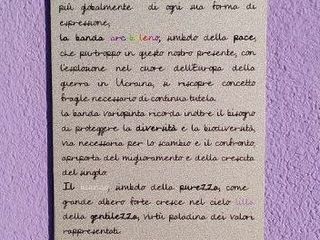 più globalmente di ogni sua forma di
espressione;
la banda arcobaleno, simbolo della pace,
che purtroppo in questo nostro presente, con
l'esplosione nel cuore dell'Europa della
guerra in Ucraina, si riscopre concetto
fragile necessario di continua tutela.
la banda variopinta ricorda inoltre il bisogno
di proteggere la diversità e la biodiversità,
via necessaria per lo scambio e il confronto,
apripista del miglioramento e della crescita
del singolo.
Il bianco, simbolo della purezza, come
grande albero forte cresce nel cielo lilla
della gentilezza, virtù paladina dei valori
rappresentati.